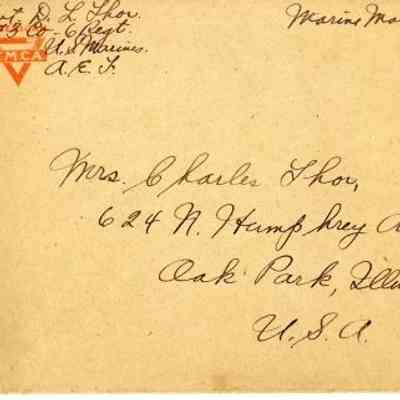 D. L. Thor.
3 Co - 6 Regt.
U.S. Marines.
A. E. F.
Y.M.C.A.
Marine Ma
Mrs. Charles Thor,
624 N. Humphrey A
Oak Park, Illi
U. S. A.